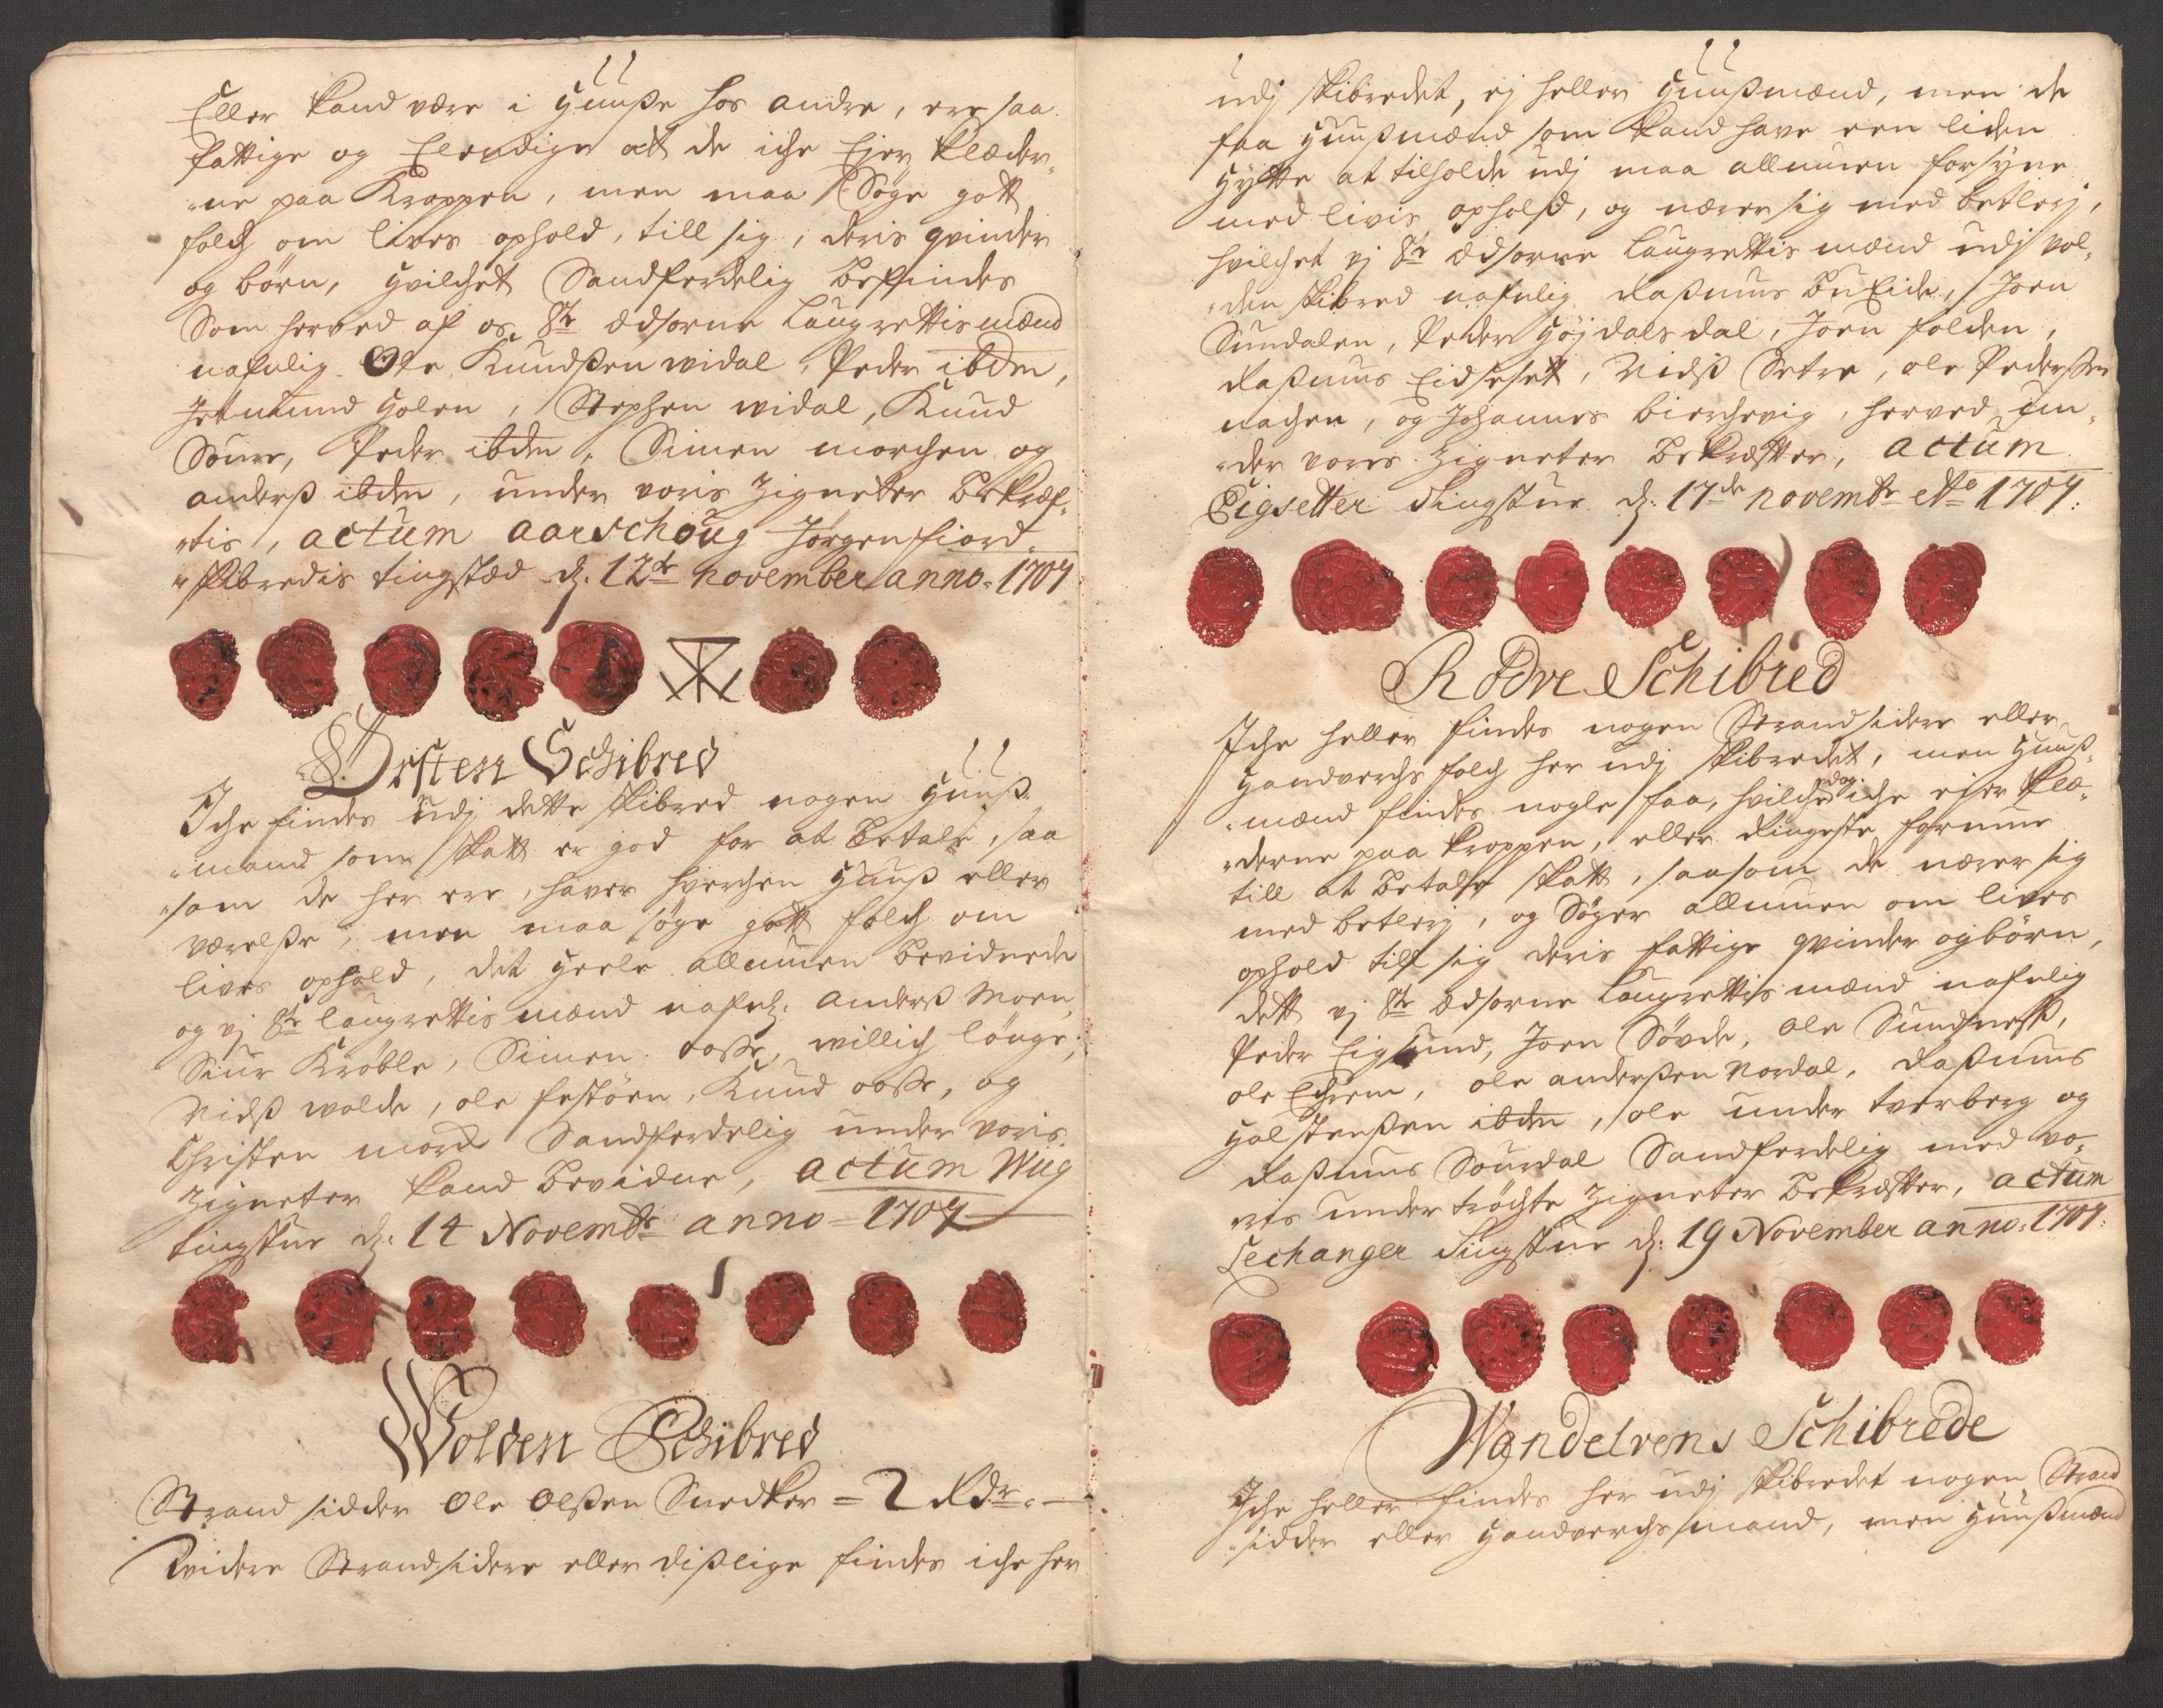 Eller kand være i Huuße hos andre, ere saa
fattige og Elendige att de iche Ejer klæder¬
ne paa Kroppen, men maa Søge gott
folch om lives ophold, till sig, deris qvinder
og børn, Hvilchet Sandferdelig befindes
Som herved af os 8te Edsorne Laugrettismænd
nafnlig Ole Knudßen widal, Peder ibdm,
Jetmund Holen, Stephen widal, Knud
Soure, Peder ibdm, Simen morchen og
anderß ibdm, under voris Zigneter bekræf¬
tis, actum aarschoug Jørgenfiord
skibredis tingstæd d: 12te november anno 1707
Ørsten Schibred
Iche findes udj dette skibred nogen Huuß¬
mand som skatt er god for at betale, saa
som de her ere, haver hverchen Huuß eller
værelße, men maa søge gott folch om
lives ophold, det Heele allmuen bevidnede
og vj 8te laugrettismænd nafnl: anderß Moen,
Siur Krøble, Simen oosse, willich løuge,
Nidß walde, ole festøen, Knud oosse, og
Christen mord Sandferdelig under voris
Zigneter kand bevidne, actum Wiig
tingstue d: 14 Novembr anno 1707
Wolden Schibred
Strandsidder Ole Olßen Snedker = 2 Rdr
Widere Strandsidere eller dißlige findes iche her
udj skibredet, ej heller Huußmænd, men de
faa Huußmænd som kand have een liden
Hytte at tilholde udj maa allmuen forsyne
med livis ophold, og nærer sig med betlerj,
hvilchet vj 8te Edsorne Laugrettismænd udj Vol¬
den skibred nafnlig Raßmus Buxide, Joen
Sundalen, Peder Højdalsdal, Joen folden,
Raßmus Eidseset, Nidß Setre, ole Pederßen
nachen, og Johannes bierchevig, herved un¬
der vores Zigneter bekræfter, actum
Eigsetter tingstue d: 17de novembr Ao 1707:
Rødve Schibred
Iche heller findes nogen Strandsidere eller
Handverchsfolch her udj skibredet, men Huuß¬
mænd findes nogle faa, hvilche dog iche ejer klæ¬
derne paa kroppen, eller ringeste formue
till at betale skatt, saasom de nærer sig
med betlerj, og Søger allmuen om lives
ophold till sig deris fattige qvinder og børn,
dett vj 8te Edsorne Laugrettismænd nafnlig
Peder Eigsund, Joen Søvde, ole Sundsneß,
ole Echrem, ole anderßen Nordal, Raßmus
Halstenßen ibdm, ole under tverberg og
Raßmus Sourdal Sandferdelig med vo¬
ris undertrøchte Zigneter bekræfter, actum
Lechanger tingstue d: 19 November anno 1707:
Wandelvens Schibrede
Iche heller findes her udj skibredet nogen Strand
sidder eller Handverchsmand, men Huußmænd